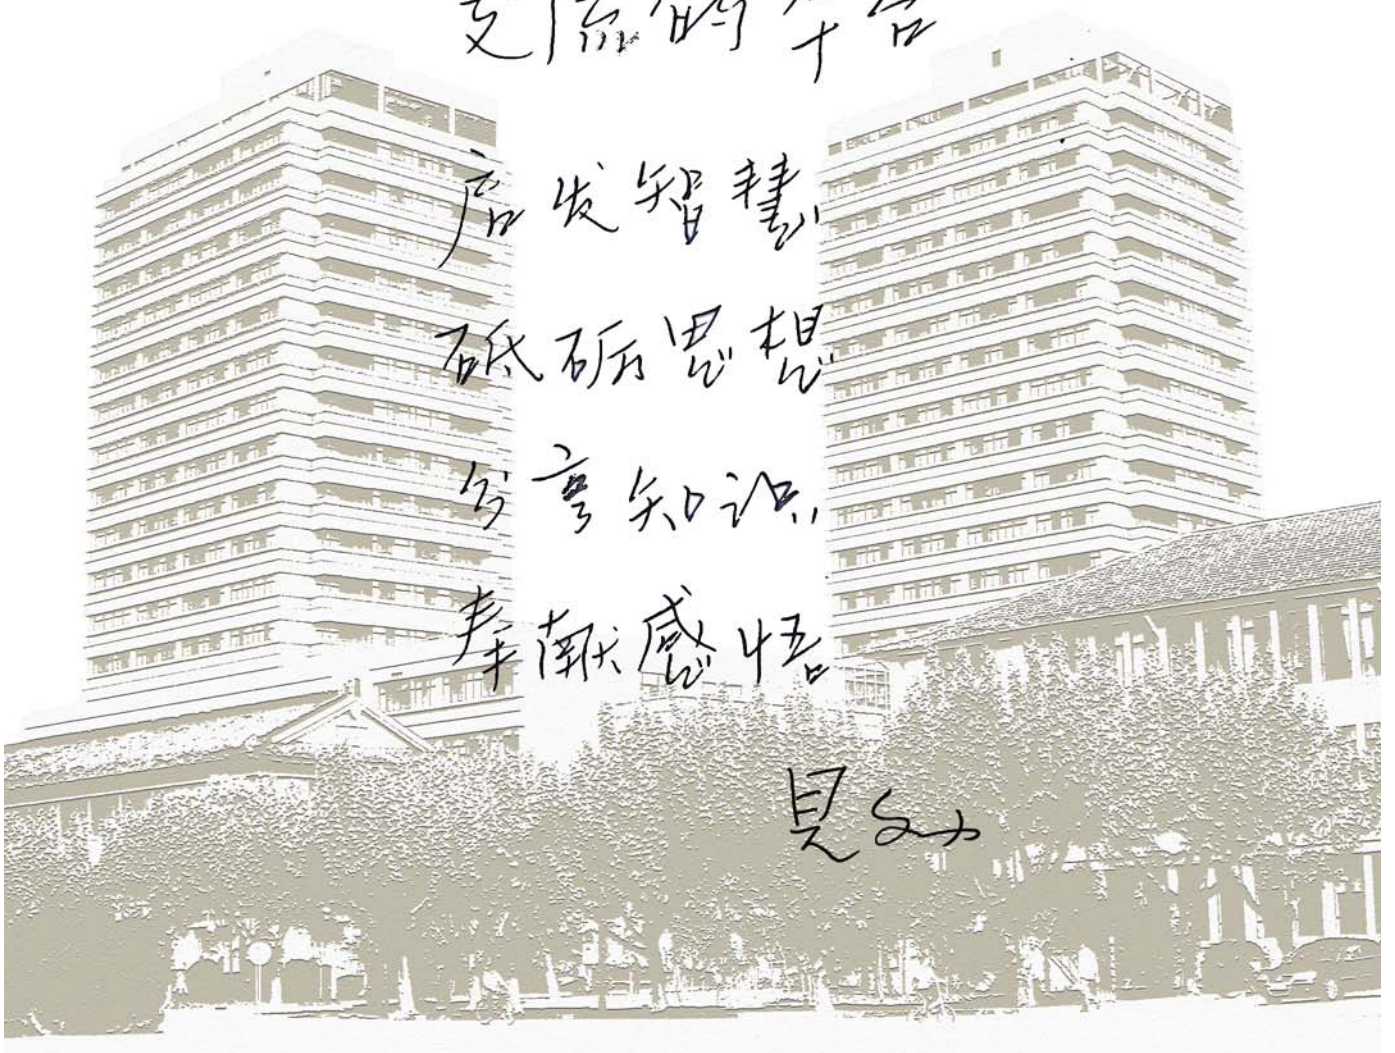 交流的平台
启发智慧
砥砺思想
分享知识
奉献感悟